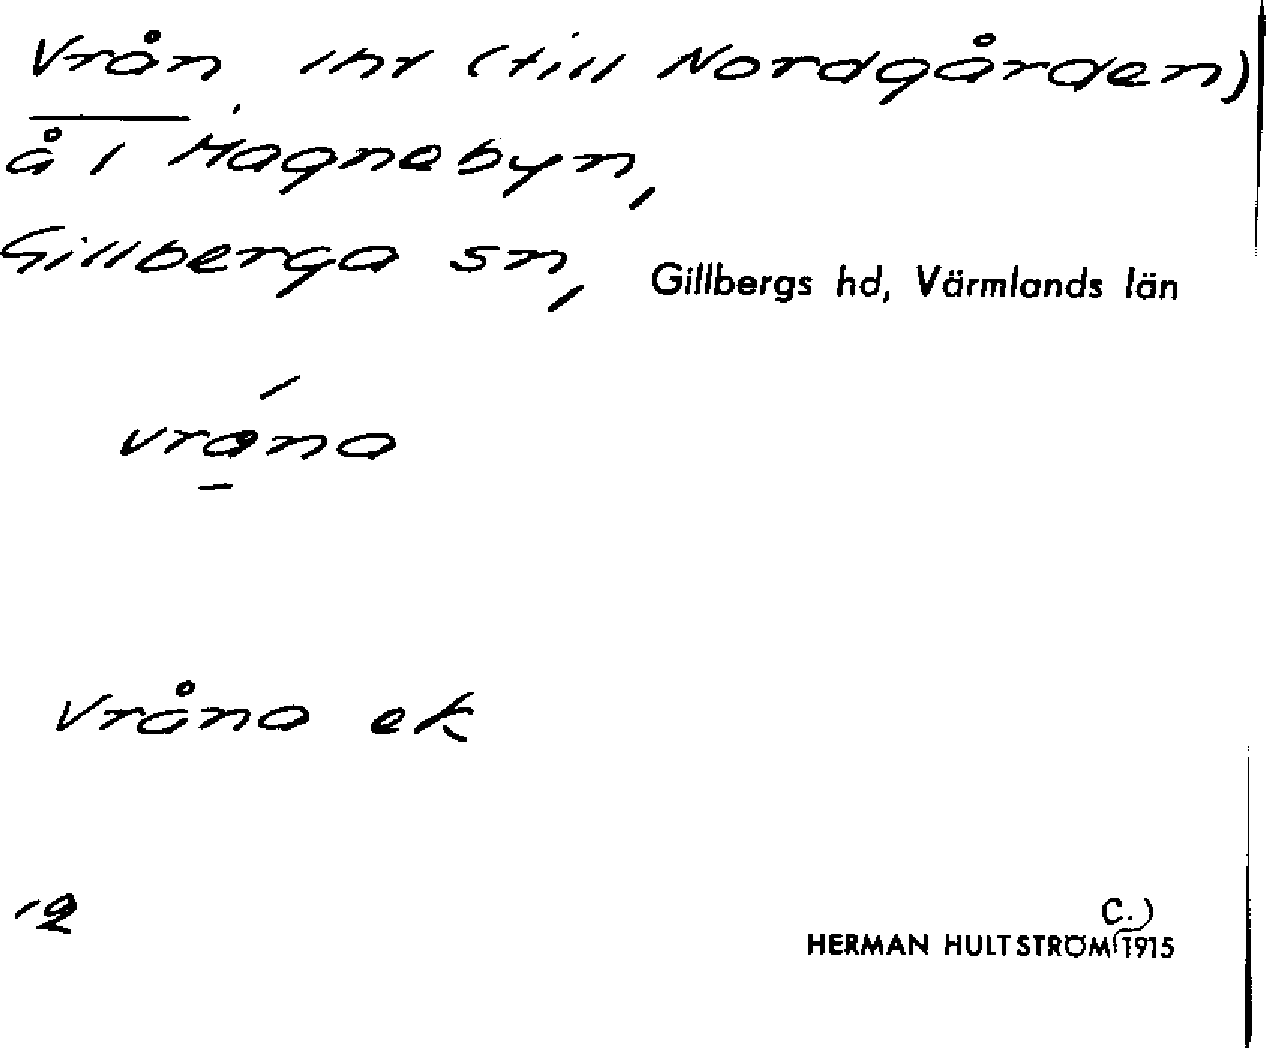 Vrån int (till Nordgården)
å i Magnebyn,
Gillberga sn, Gillbergs hd, Värmlands län
vrána
Vråna ek
12
C.)
HERMAN HULTSTRÖM 1915